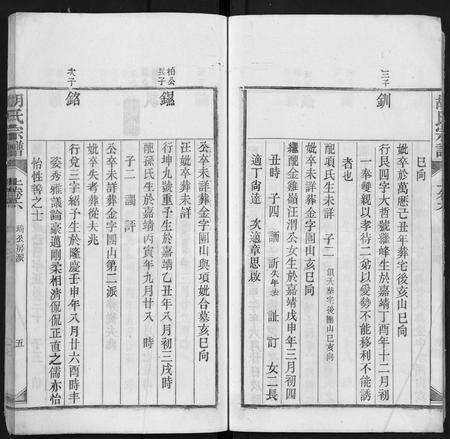 巳向
妣卒於萬曆己丑年葬宅後亥山巳向
三子
釧
行艮四字大習號龍峰生於嘉靖丁酉年十二月初
一奉雙親以孝待二弟以愛勢不能移利不能誘
者也
配項氏生未詳 子二 俱夭葬宅後龍山巳亥向
妣卒未詳葬金字圍山亥巳向
繼配金雞嶺汪渭公女生於嘉靖戊申年三月初四
丑時 子四 誦 訢失年 誌 訂 女二長
適丁尚達 次適章思啟
胡氏宗譜
瑞公房派
五
柏公五子
鑑
汪妣卒葬未詳
公卒未詳葬金字圍山與項妣合墓亥巳向
行坤九號重予生於嘉靖乙丑年八月初三戌時
配孫氏生於嘉靖丙寅年九月廿八 時
子二 謁 評
公卒未詳葬金字圍山第二派
妣卒失考葬從夫兆
次子
銘
行兌三字紹予生於隆慶壬申年八月廿六酉時丰
姿秀雅議論豪邁剛柔相濟侃侃正直之儒亦怡
怡性善之士